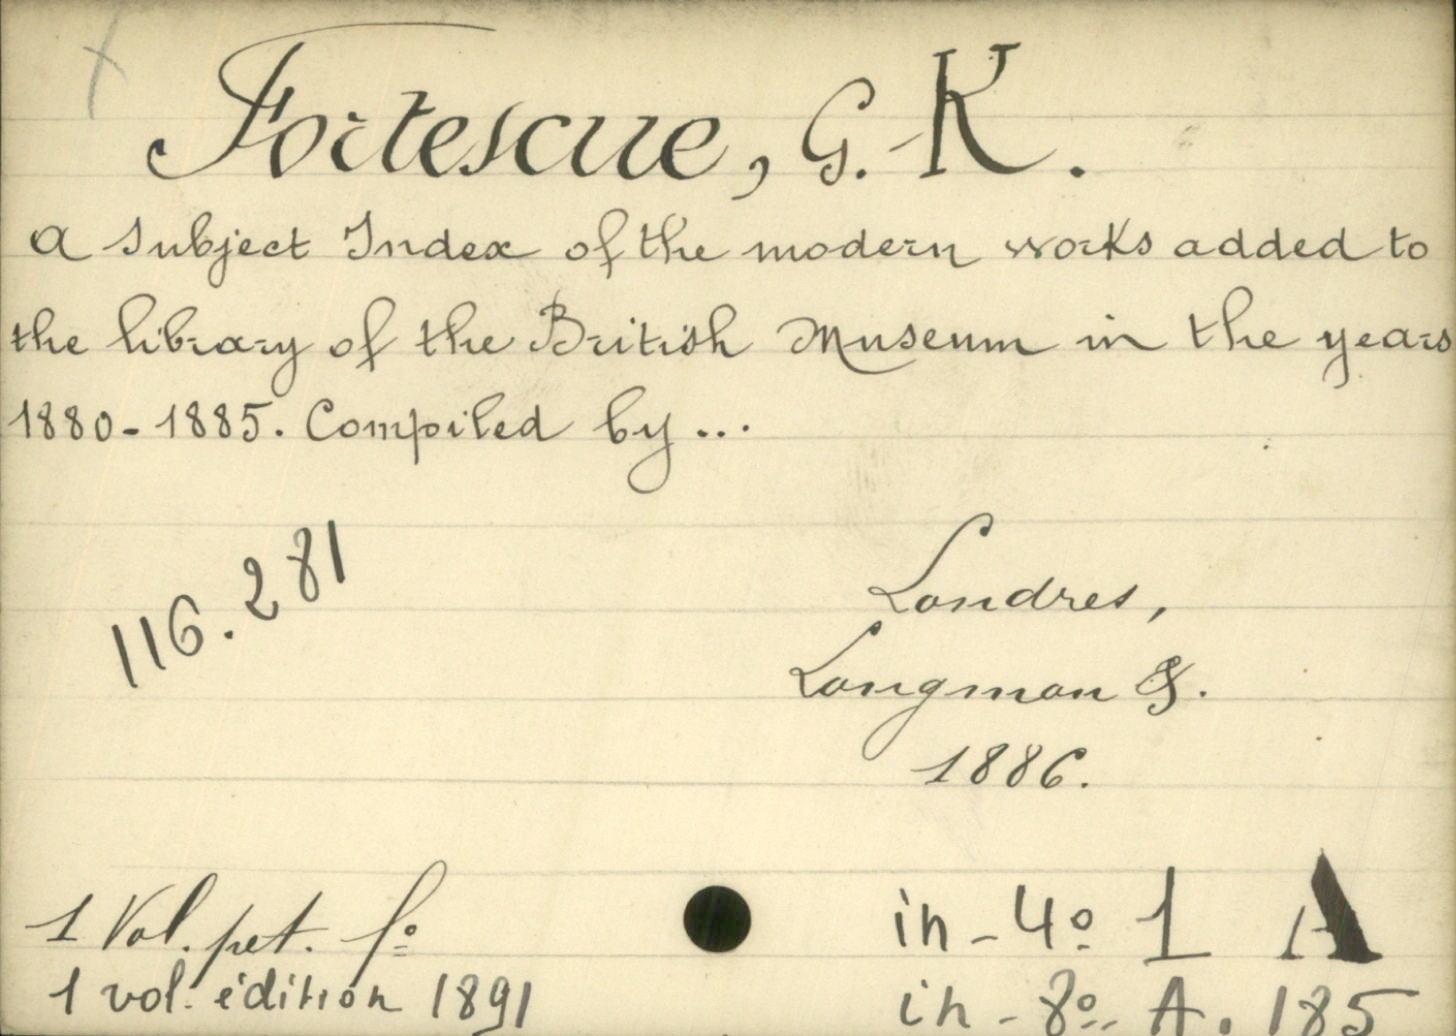 Fortescue, G. K.
A Subject Index of the modern works added to
the library of the British Museum in the years
1880-1885. Compiled by...
116.281
Londres,
Longman &.
1886.
1 Vol. pet. fº
in-4º 1 A
1 vol. édition 1891
in-8º A. 185